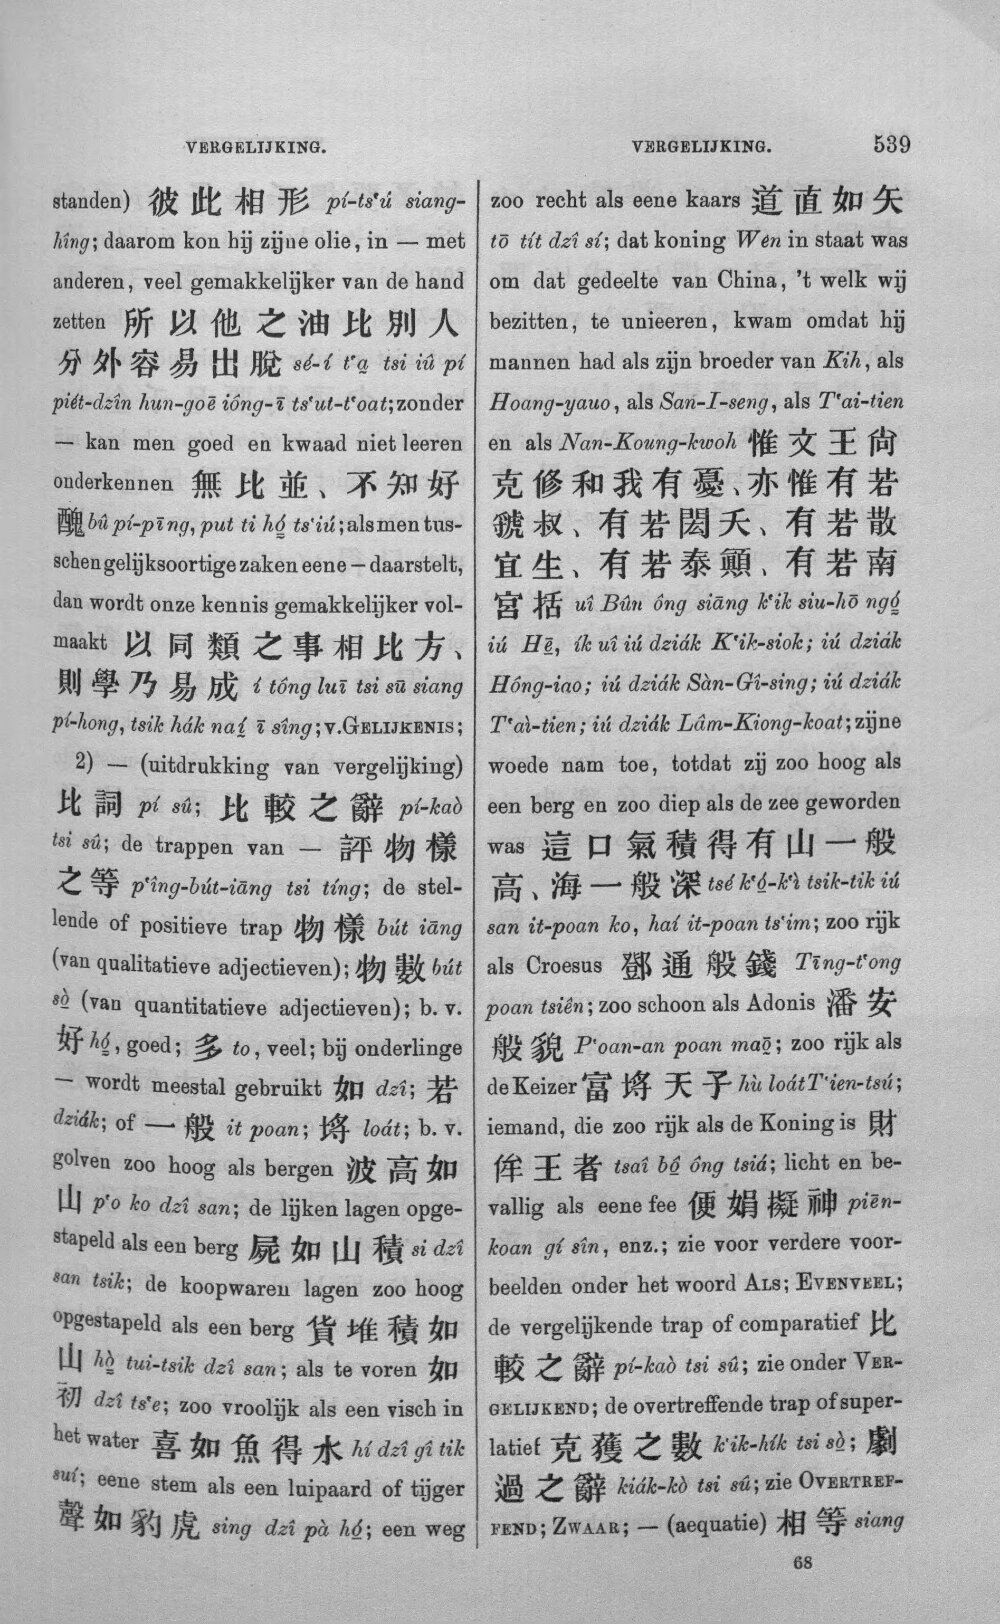 VERGELIJKING.
VERGELIJKING. 539
standen) 彼此相形 pí-ts‘ú siang-
hîng; daarom kon hij zijne olie, in — met
anderen, veel gemakkelijker van de hand
zetten 所以他之油比別人
分外容易出脫 sé-í t‘a̤ tsi iû pí
piét-dzîn hun-goē iông-ī ts‘ut-t‘oat; zonder
— kan men goed en kwaad niet leeren
onderkennen 無比並、不知好
醜 bû pí-pīng, put ti hó̤ ts‘iú; als men tus-
schen gelijksoortige zaken eene — daarstelt,
dan wordt onze kennis gemakkelijker vol-
maakt 以同類之事相比方、
則學乃易成 í tông luī tsi sū siang
pí-hong, tsik hák naí̤ ī sîng; v. GELIJKENIS;
2) — (uitdrukking van vergelijking)
比詞 pí sû; 比較之辭 pí-kaò
tsi sû; de trappen van — 評物樣
之等 p‘îng-bút-iāng tsi tíng; de stel-
lende of positieve trap 物樣 bút iāng
(van qualitatieve adjectieven); 物數 bút
sò̤ (van quantitatieve adjectieven); b. v.
好 hó̤, goed; 多 to, veel; bij onderlinge
— wordt meestal gebruikt 如 dzî; 若
dziák; of 一般 it poan; 埒 loát; b. v.
golven zoo hoog als bergen 波高如
山 p‘o ko dzî san; de lijken lagen opge-
stapeld als een berg 屍如山積 si dzî
san tsik; de koopwaren lagen zoo hoog
opgestapeld als een berg 貨堆積如
山 hò̤ tui-tsik dzî san; als te voren 如
初 dzî ts‘e; zoo vroolijk als een visch in
het water 喜如魚得水 hí dzî gî tik
suí; eene stem als een luipaard of tijger
聲如豹虎 sing dzî pà hó̤; een weg
zoo recht als eene kaars 道直如矢
tō tít dzî sí; dat koning Wên in staat was
om dat gedeelte van China, 't welk wij
bezitten, te unieeren, kwam omdat hij
mannen had als zijn broeder van Kih, als
Hoang-yauo, als San-I-seng, als T‘ai-tien
en als Nan-Koung-kwoh 惟文王尙
克修和我有憂、亦惟有若
虢叔、有若閎夭、有若散
宜生、有若泰顚、有若南
宮括 uî Bûn ông siāng k‘ik siu-hō ngó̤
iú Hē̤, ík uî iú dziák K‘ik-siok; iú dziák
Hông-iao; iú dziák Sàn-Gî-sing; iú dziák
T‘aì-tien; iú dziák Lâm-Kiong-koat; zijne
woede nam toe, totdat zij zoo hoog als
een berg en zoo diep als de zee geworden
was 這口氣積得有山一般
高、海一般深 tsé k‘ó̤-k‘ì tsik-tik iú
san it-poan ko, haí it-poan ts‘im; zoo rijk
als Croesus 鄧通般錢 Tīng-t‘ong
poan tsiên; zoo schoon als Adonis 潘安
般貌 P‘oan-an poan maō̤; zoo rijk als
de Keizer 富埒天子 hù loát T‘ien-tsú;
iemand, die zoo rijk als de Koning is 財
侔王者 tsaî bô̤ ông tsiá; licht en be-
vallig als eene fee 便娟擬神 piēn-
koan gí sîn, enz.; zie voor verdere voor-
beelden onder het woord ALS; EVENVEEL;
de vergelijkende trap of comparatief 比
較之辭 pí-kaò tsi sû; zie onder VER-
GELIJKEND; de overtreffende trap of super-
latief 克獲之數 k‘ik-hík tsi sò̤; 劇
過之辭 kiák-kò tsi sû; zie OVERTREF-
FEND; ZWAAR; — (aequatie) 相等 siang
68